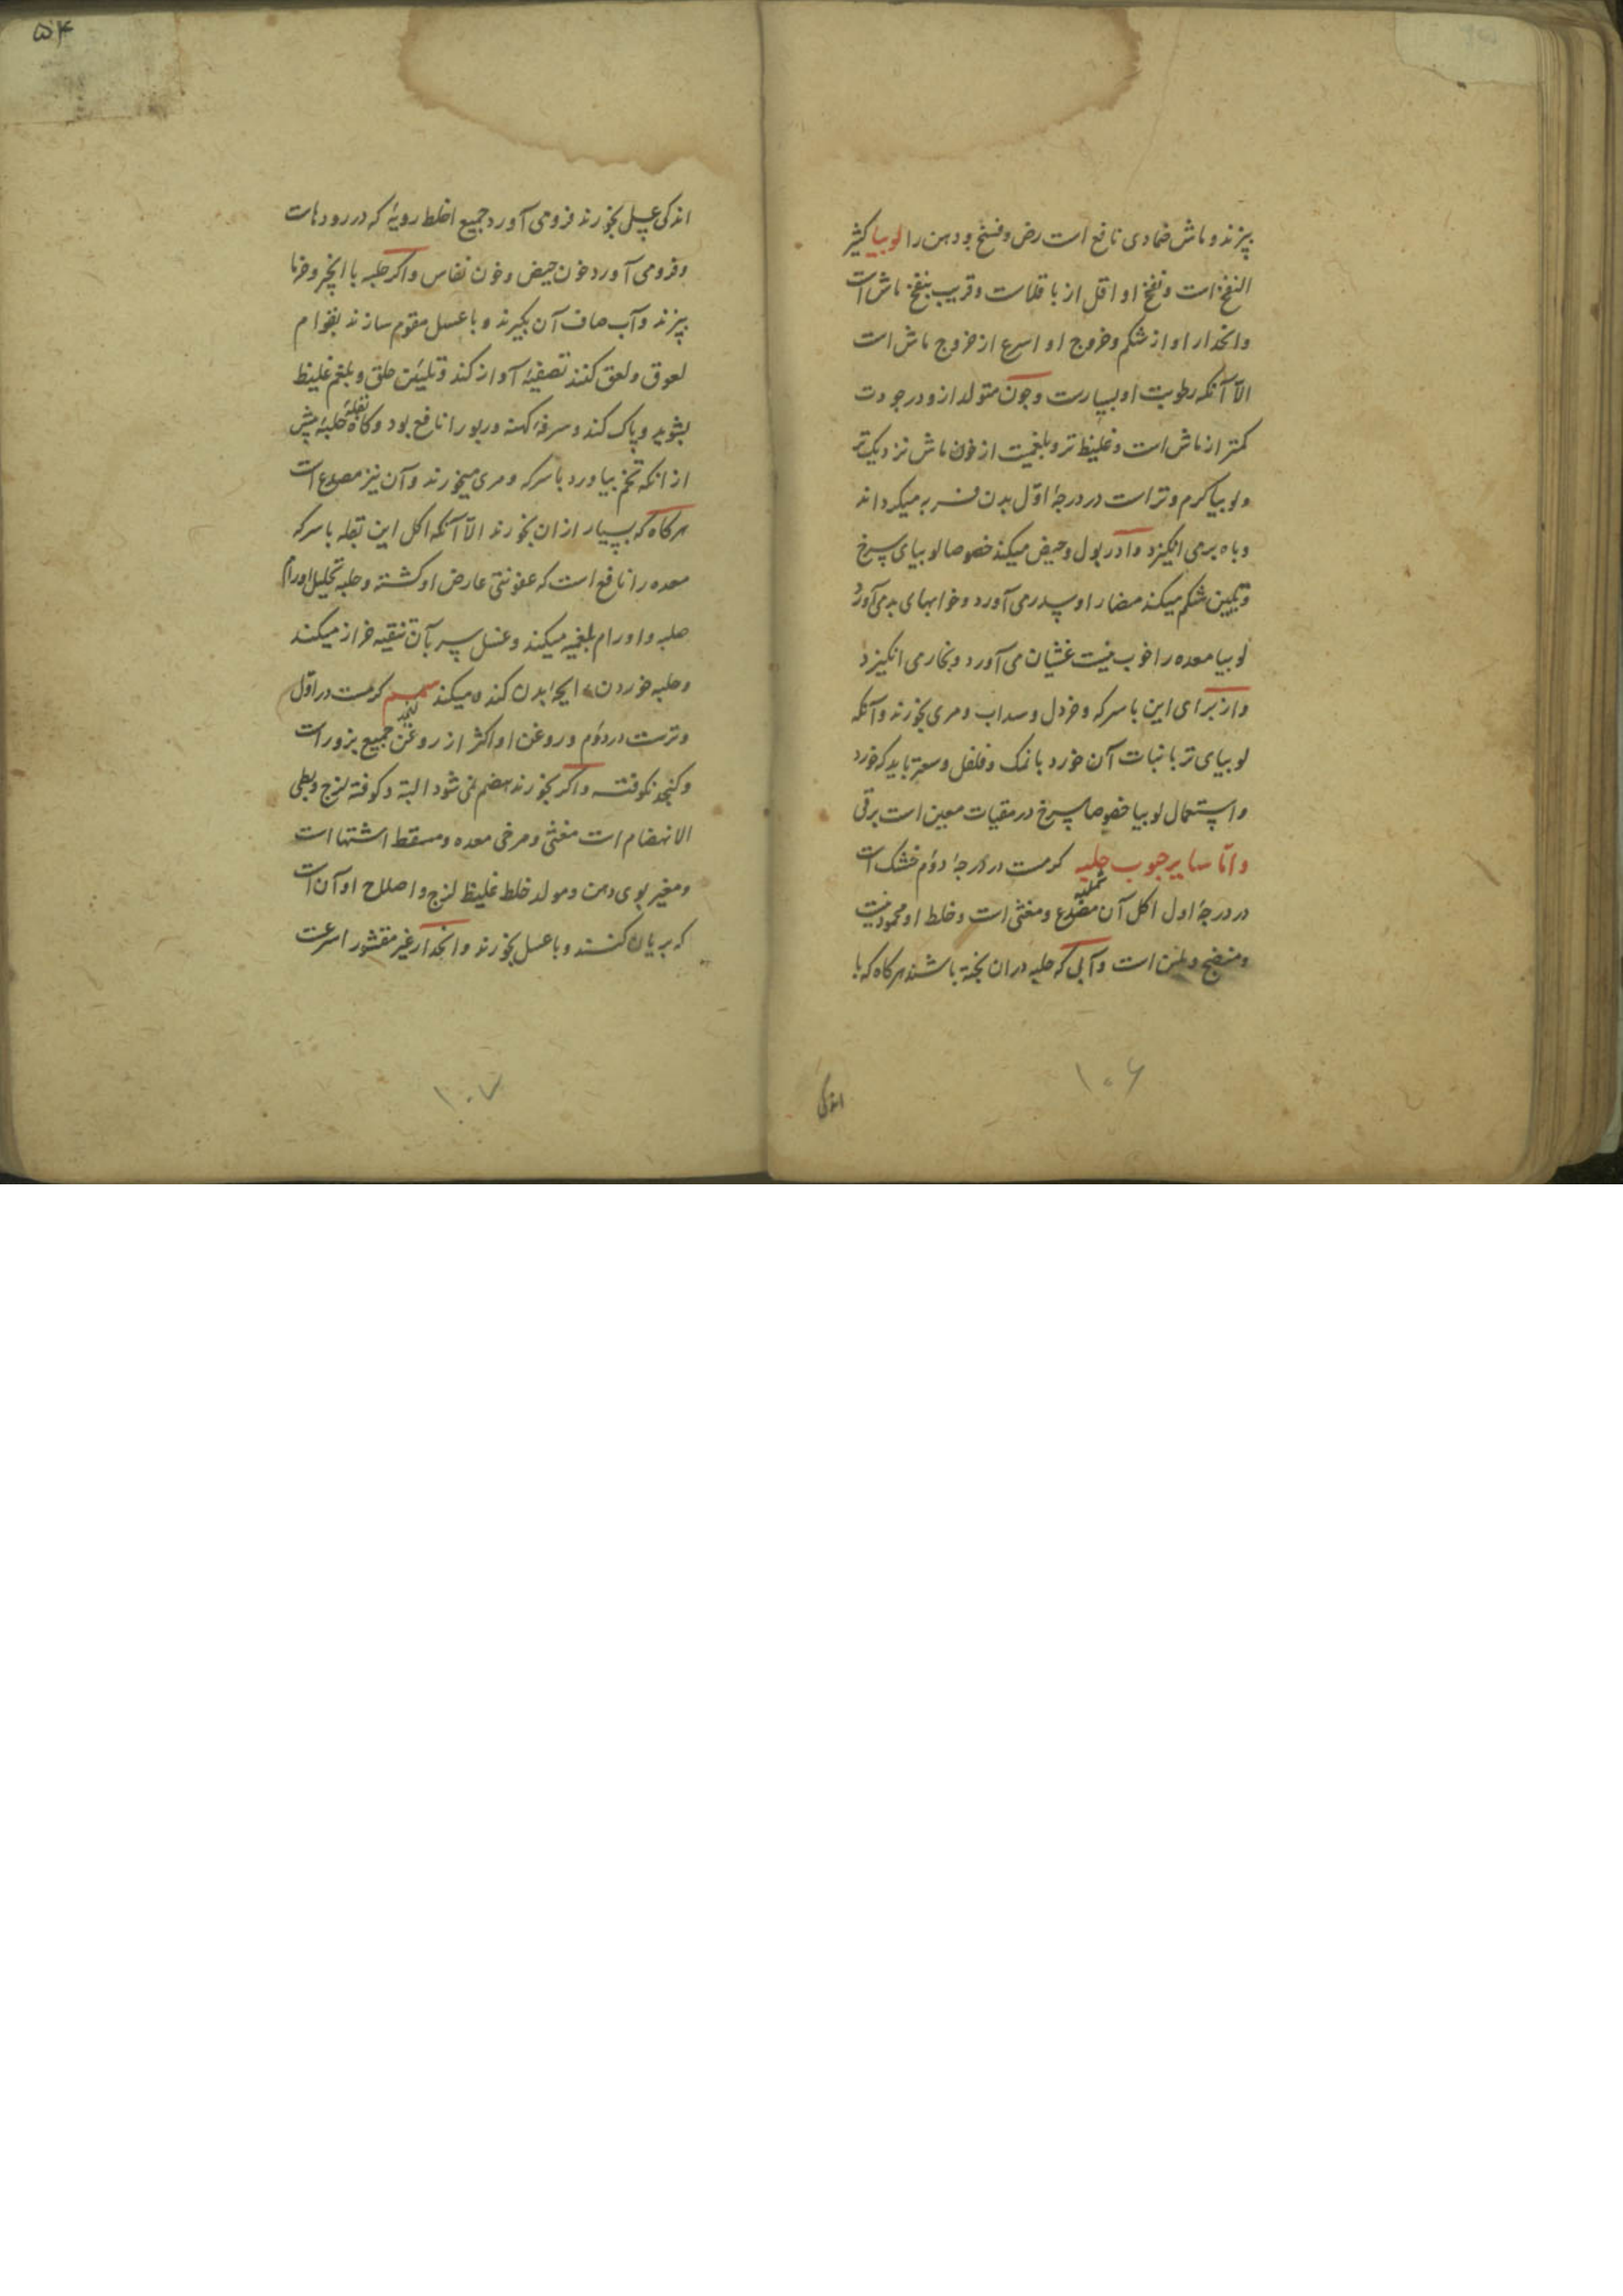 بپزند و ماش ضمادی نافع است رض و فسخ و دهن را لوبیا کثیر
النفخ است و نفخ او اقل از باقلاست و قریب بنفخ ماش است
و انحدار او از شکم و خروج او اسرع از خروج ماش است
الا آنکه رطوبت او بسیارست و چون متولد ازو در جودت
کمتر از ماش است و غلیظ تر و بلغمیت از خون ماش نزدیک تر
و لوبیا کرم و تر است در درجهٔ اوّل بدن فربه میکرداند
و باه برمی انکیزد و ادرار بول و حیض میکند خصوصا لوبیای سرخ
و تلیین شکم میکند مضار او سدر می آورد و خوابهای بد می آورد
لوبیا معده را خوب نیست غثیان می آورد و بخار می انکیزد
و از برای این با سرکه و خردل و سداب و مری بخورند و آنکه
لوبیای تر با نبات آن خورد با نمک و فلفل و سعتر باید که خورد
و استعمال لوبیا خصوصا سرخ در مقیات معین است بر قی
و امّا سایر حبوب حلبه کرمست در درجهٔ دوّم خشک است
شملیه
در درجهٔ اول اکل آن مصدع و مغثی است و خلط او محمود نیست
و منضج و ملین است و آبی که حلبه در ان پخته باشند هرکاه که با
اندکی
۱۰۶
۵۴
اندکی عسل بخورند فرو می آورد جمیع اخلط رویهٔ که در رودهاست
و فرو می آورد خون حیض و خون نفاس و اکر حلبه با انجیر و خرما
بپزند و آب صاف آن بکیرند و با عسل مقوم سازند بقوام
لعوق و لعق کنند تصفیهٔ آواز کند و تلیین حلق و بلغم غلیظ
بشوید و پاک کند و سرفهٔ کهنه و ربو را نافع بود و کاه بقلهٔ حلبه پیش
از انکه تخم بیاورد با سرکه و مری میخورند و آن نیز مصدع است
هرکاه که بسیار از ان بخورند الا آنکه اکل این بقله با سرکه
معده را نافع است که عفونتی عارض او کشته و حلبه تحلیل اورام
صلبه و اورام بلغمیه میکند و غسل سر بآن تنقیه خراز میکند
و حلبه خوردن رایحهٔ بدن کنده میکند سمسم کرمست در اوّل
کنجد
و ترست در دوّم و روغن او اکثر از روغن جمیع بزور است
و کنجد نکوفته و اکر بخورند هضم نمی شود البته و کوفته لزج و بطی
الانهضام است مغثی و مرخی معده و مسقط اشتها است
و مغیر بوی دهن و مولد خلط غلیظ لزج و اصلاح او آن است
که بریان کنند و با عسل بخورند و انحدار غیر مقشور اسرعست
۱۰۷